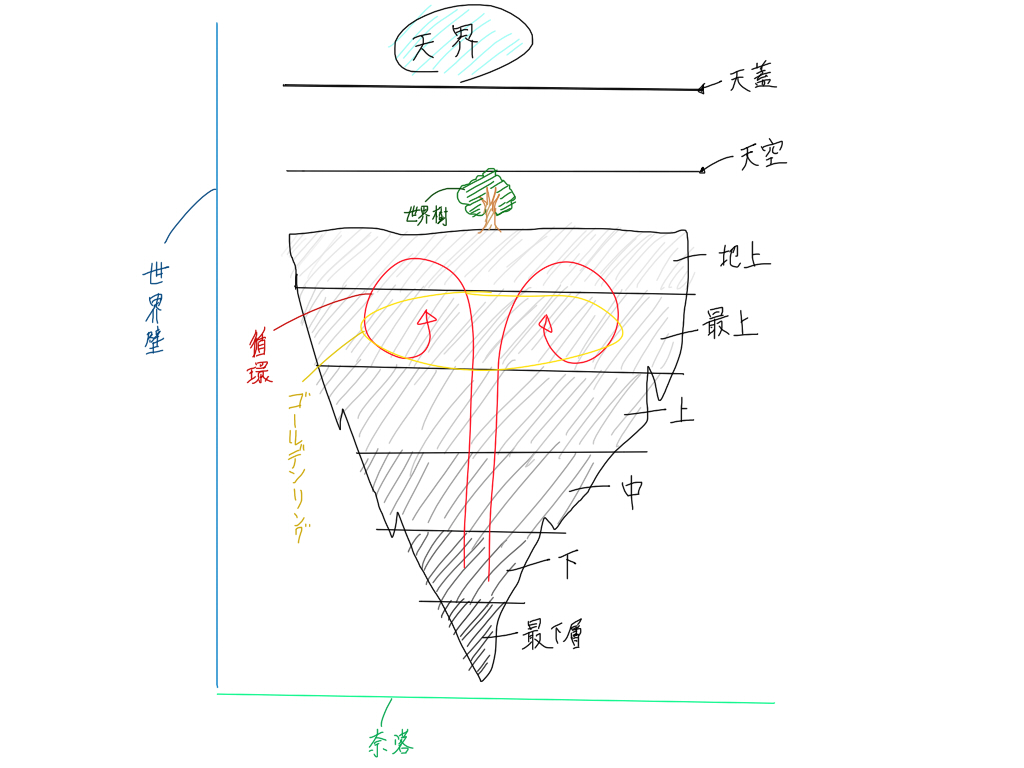 天界
天蓋
天空
世界樹
地上
世界壁
最上
循環
ゴールデンリング
上
中
下
最下層
奈落